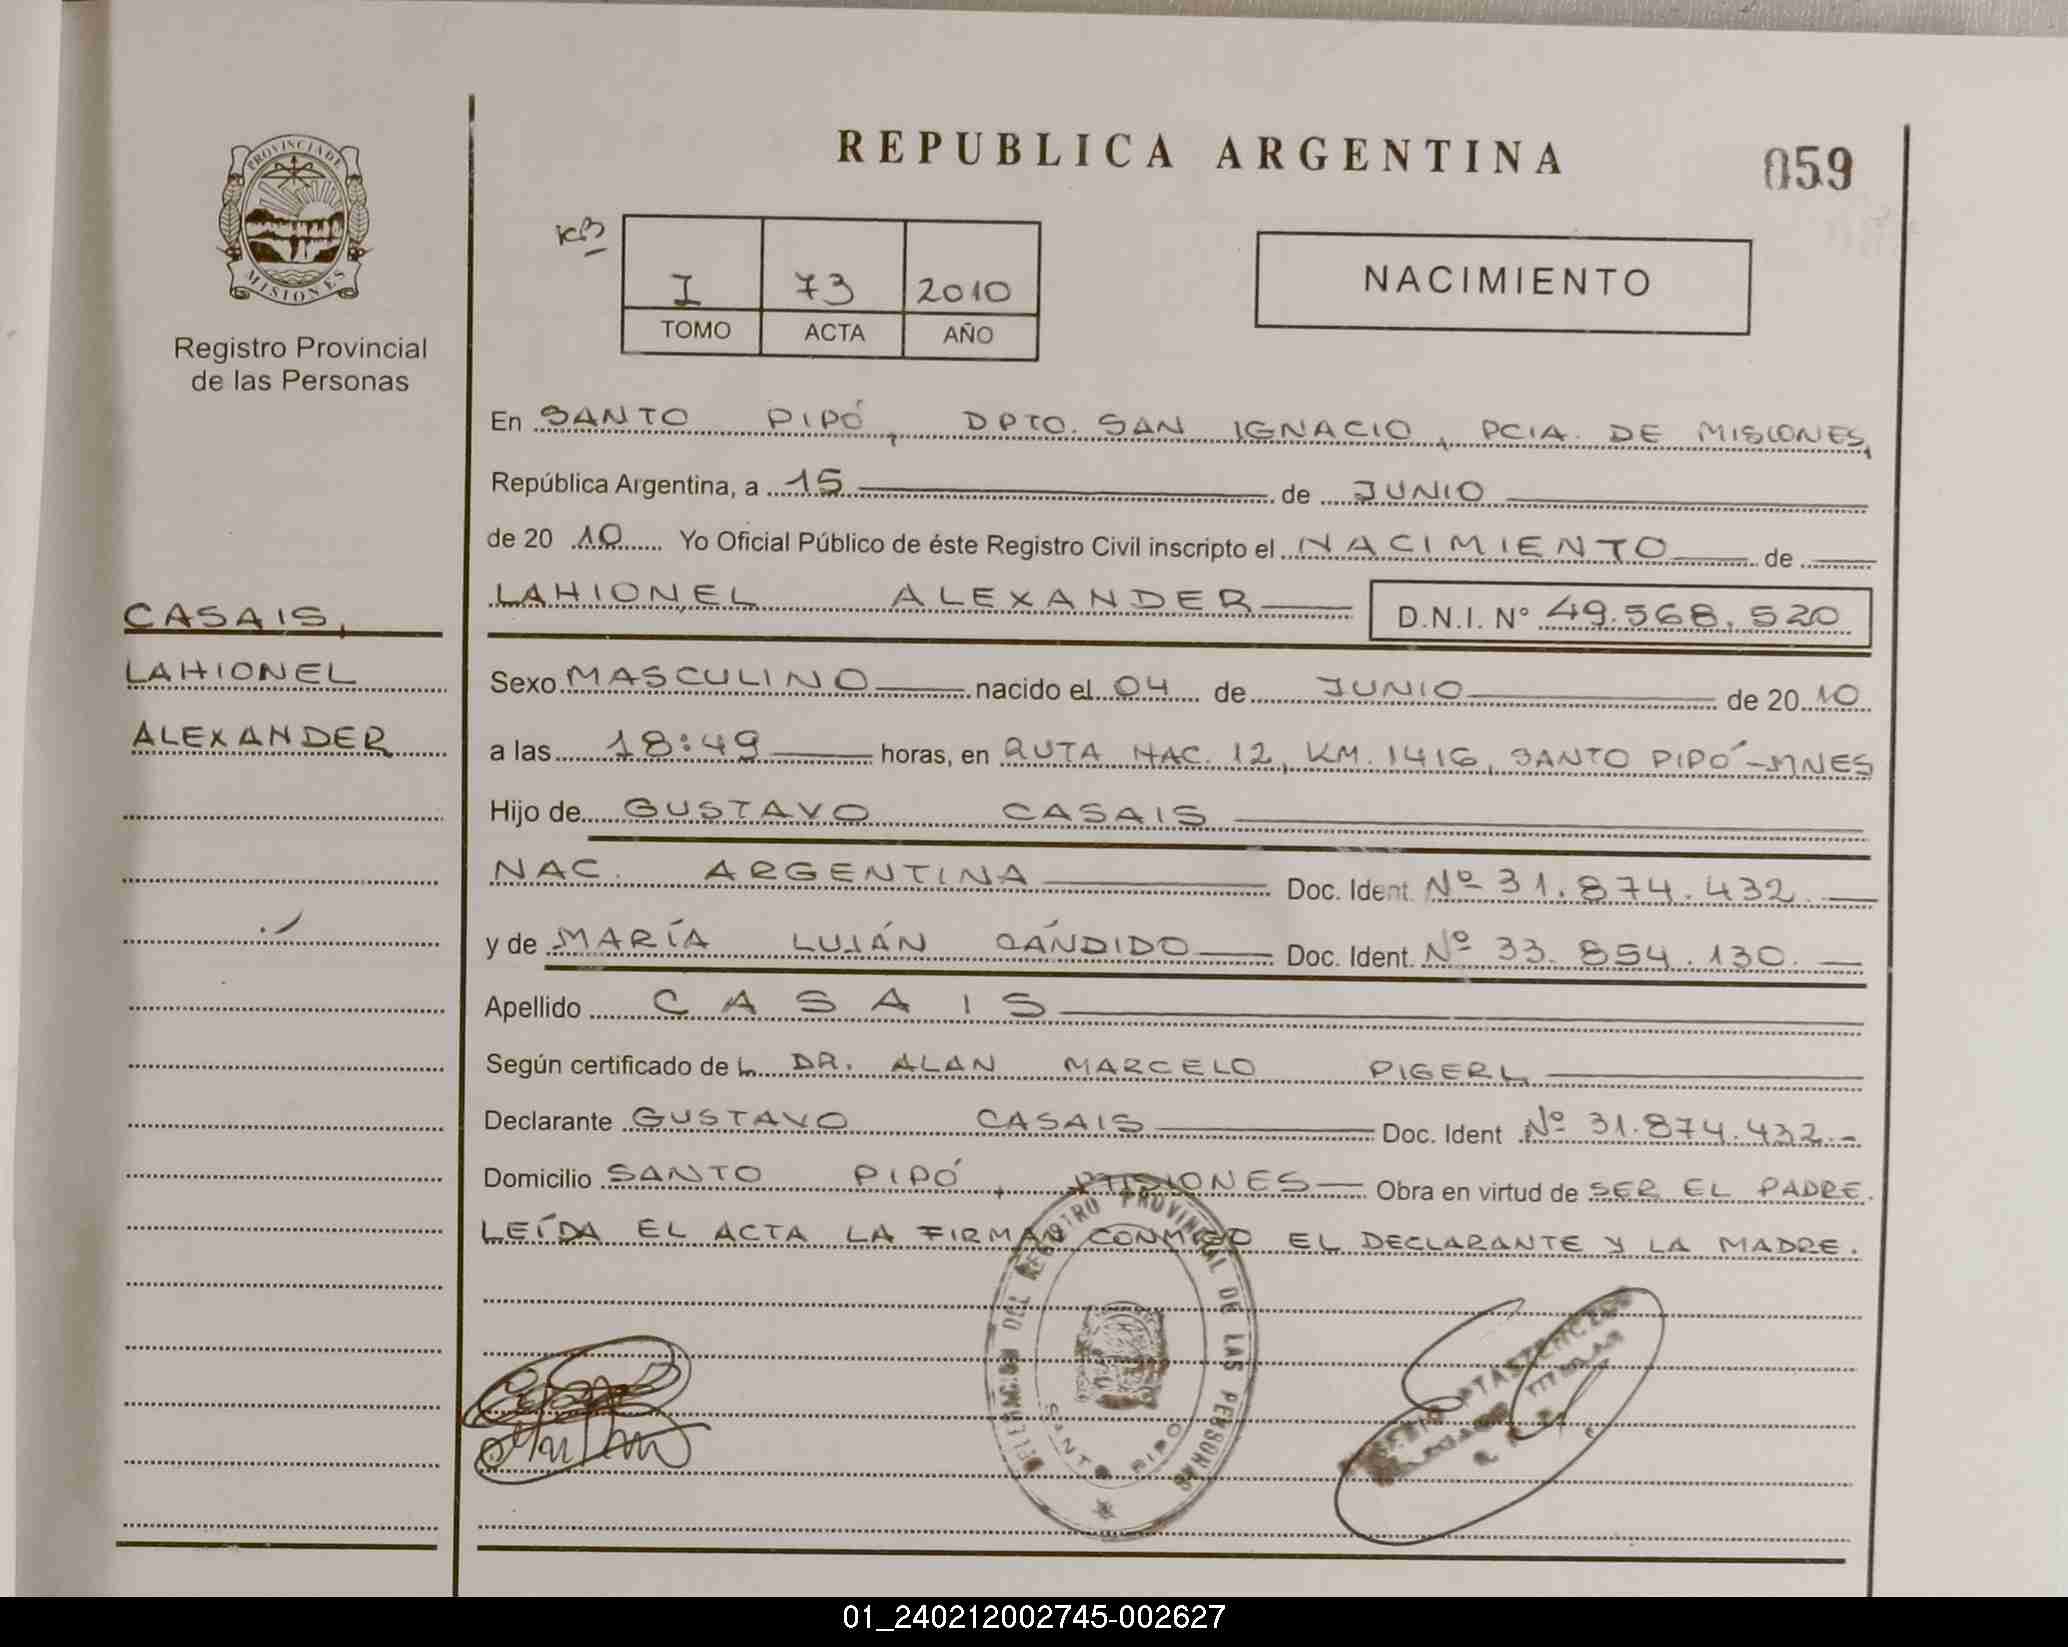 REPUBLICA ARGENTINA
059
PROVINCIA DE
MISIONES
Registro Provincial
de las Personas
KB
I 73 2010
TOMO ACTA AÑO
NACIMIENTO
En SANTO PIPÓ, DPTO. SAN IGNACIO, PCIA. DE MISIONES,
República Argentina, a 15 de JUNIO
de 20 10 Yo Oficial Público de éste Registro Civil inscripto el NACIMIENTO de
LAHIONEL ALEXANDER D.N.I. N° 49.568.520
CASAIS,
LAHIONEL
ALEXANDER
Sexo MASCULINO nacido el 04 de JUNIO de 20 10
a las 18:49 horas, en RUTA NAC. 12, KM. 1416, SANTO PIPÓ-MNES
Hijo de GUSTAVO CASAIS
NAC. ARGENTINA Doc. Ident. Nº 31.874.432.
y de MARÍA LUJÁN CÁNDIDO Doc. Ident. Nº 33.854.130.
Apellido CASAIS
Según certificado de L DR. ALAN MARCELO PIGERL
Declarante GUSTAVO CASAIS Doc. Ident Nº 31.874.432.-
Domicilio SANTO PIPÓ, MISIONES Obra en virtud de SER EL PADRE.
LEÍDA EL ACTA LA FIRMAN CONMIGO EL DECLARANTE Y LA MADRE.
DELEGACION DEL REGISTRO PROVINCIAL DE LAS PERSONAS
SANTO PIPO
TITULAR
01_240212002745-002627